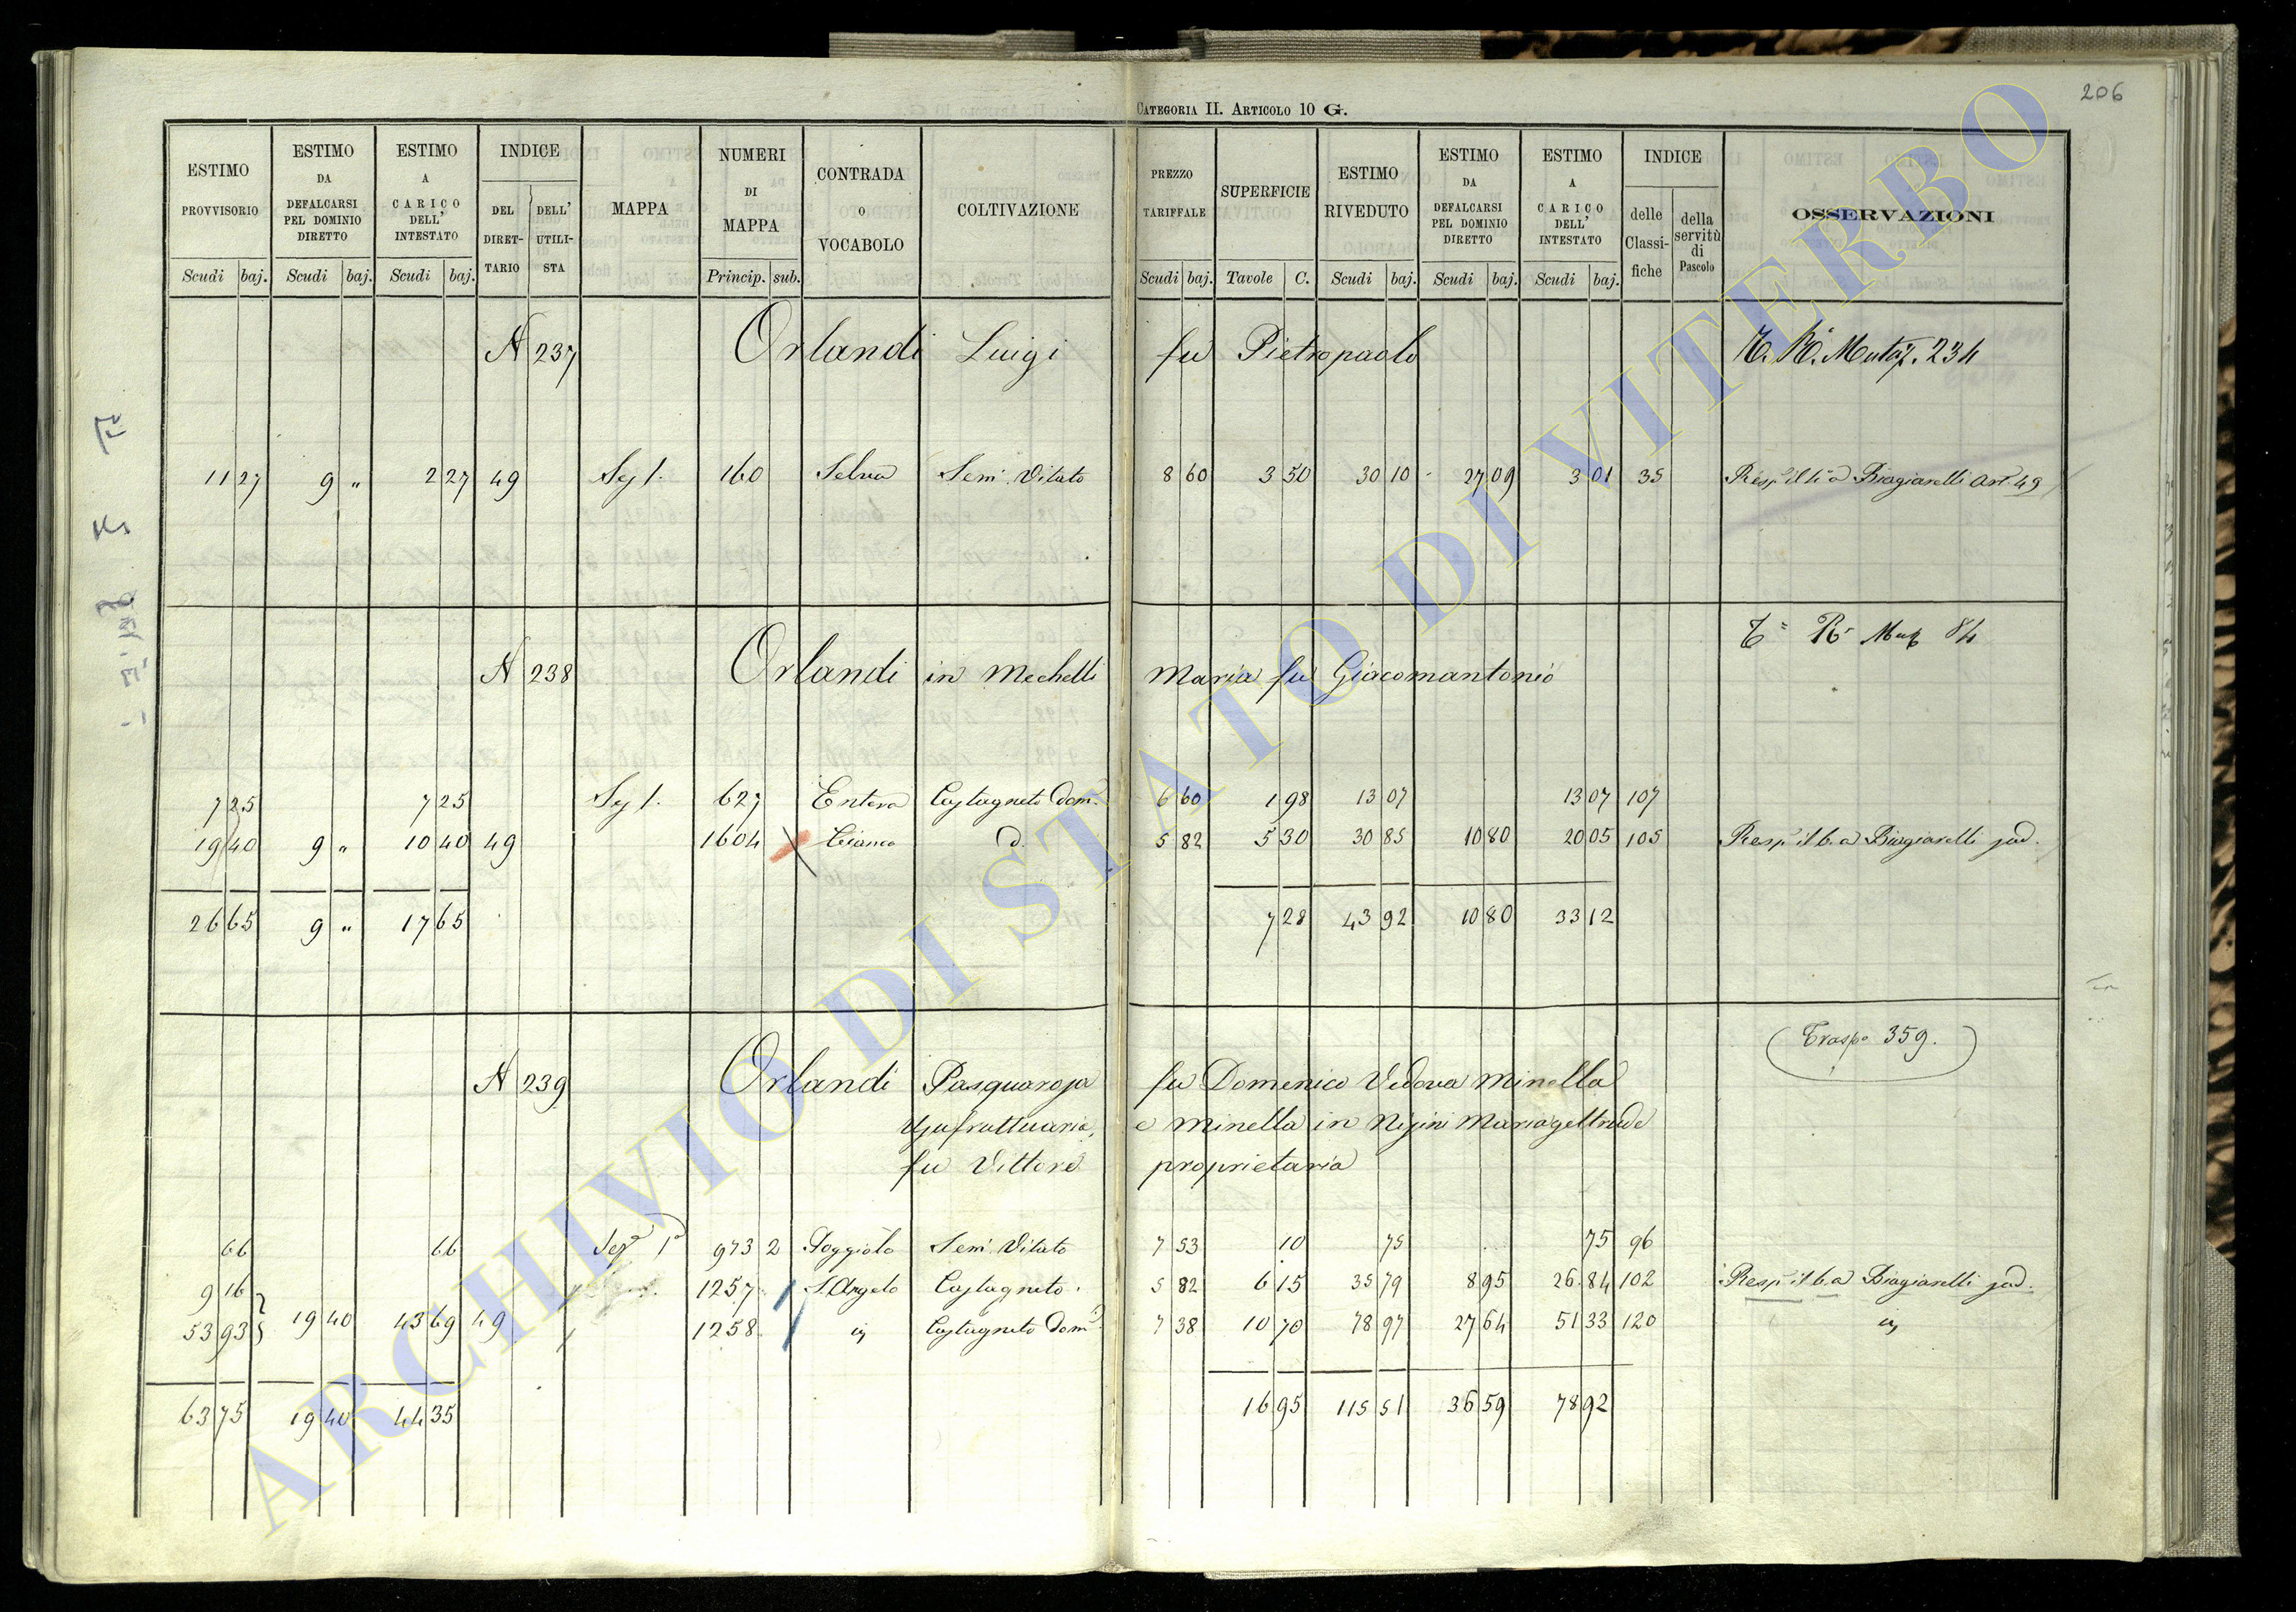 206
CATEGORIA II. ARTICOLO 10 G.
ESTIMO PROVVISORIO Scudi baj. ESTIMO DA DEFALCARSI PEL DOMINIO DIRETTO Scudi baj. ESTIMO A CARICO DELL' INTESTATO Scudi baj. INDICE DEL DIRET-TARIO DELL' UTILI-STA MAPPA NUMERI DI MAPPA Princip. sub. CONTRADA O VOCABOLO COLTIVAZIONE PREZZO TARIFFALE Scudi baj. SUPERFICIE Tavole C. ESTIMO RIVEDUTO Scudi baj. ESTIMO DA DEFALCARSI PEL DOMINIO DIRETTO Scudi baj. ESTIMO A CARICO DELL' INTESTATO Scudi baj. INDICE delle Classi-fiche della servitù di Pascolo OSSERVAZIONI
N 237 Orlandi Luigi fu Pietropaolo 234
11 27 9 " 2 27 49 Sez 1. 160 Selva Sem. Vitato 8 60 3 50 30 10 27 09 3 01 35 Biagiarelli art. 49
N 238 Orlandi in Mechelli Maria fu Giacomantonio 84
7 25 7 25 Sez 1. 627 Entera Castagneto Dom. 6 60 1 98 13 07 13 07 107
19 40 9 " 10 40 49 1604 d. 5 82 5 30 30 85 10 80 20 05 105 Biagiarelli sud.
26 65 9 " 17 65 7 28 43 92 10 80 33 12
Trasp. 359.
N 239 Orlandi Pasquarosa fu Domenico Vedova Minella
Usufruttuaria, e Minella in Nisini Mariageltrude
fu Vittore proprietaria
66 66 Sez. 1ª 973 2 Poggiolo Sem. Vitato 7 53 10 75 75 96
9 16 1257 S. Angelo Castagneto 5 82 6 15 35 79 8 95 26 84 102 Biagiarelli sud.
53 93 19 40 43 69 49 1258 Castagneto Dom. 7 38 10 70 78 97 27 64 51 33 120
63 75 19 40 44 35 16 95 115 51 36 59 78 92
ARCHIVIO DI STATO DI VITERBO